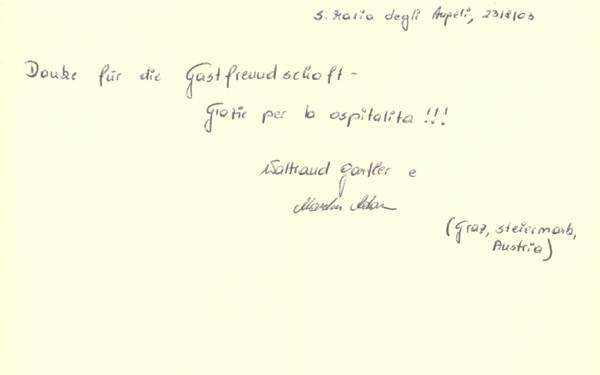 S. Maria degli Angeli, 23/8/03
Danke für die Gastfreundschaft -
Grazie per la ospitalita !!!
Waltraud e
(Graz, Steiermark,
Austria)